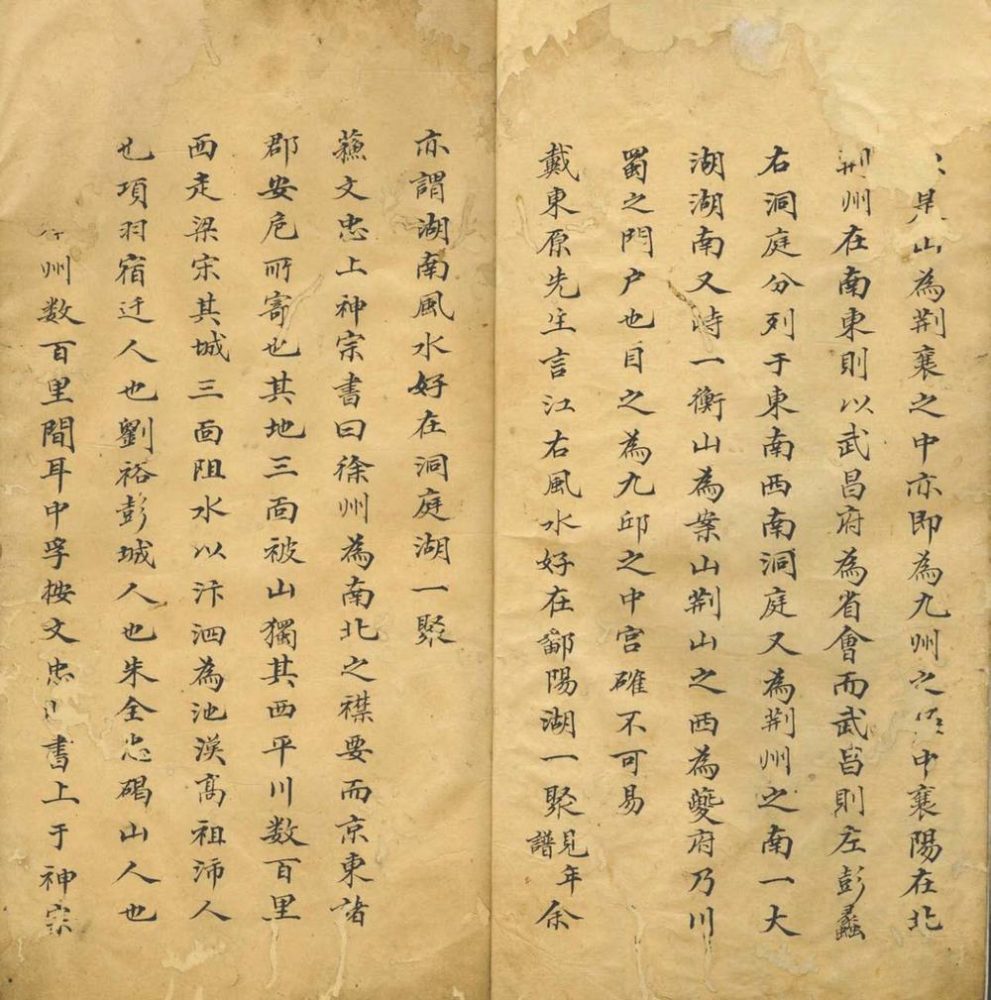 山為荆襄之中亦即為九州之中襄陽在北
荆州在南東則以武昌府為省會而武昌則左彭蠡
右洞庭分列于東南西南洞庭又為荆州之南一大
湖湖南又峙一衡山為案山荆山之西為夔府乃川
蜀之門户也目之為九邱之中宫確不可易
戴東原先生言江右風水好在鄱陽湖一聚見年譜余
亦謂湖南風水好在洞庭湖一聚
蘇文忠上神宗書曰徐州為南北之襟要而京東諸
郡安危所寄也其地三面被山獨其西平川数百里
西走梁宋其城三面阻水以汴泗為池漢高祖沛人
也項羽宿迁人也劉裕彭城人也朱全忠碭山人也
州数百里間耳中孚按文忠書上于神宗